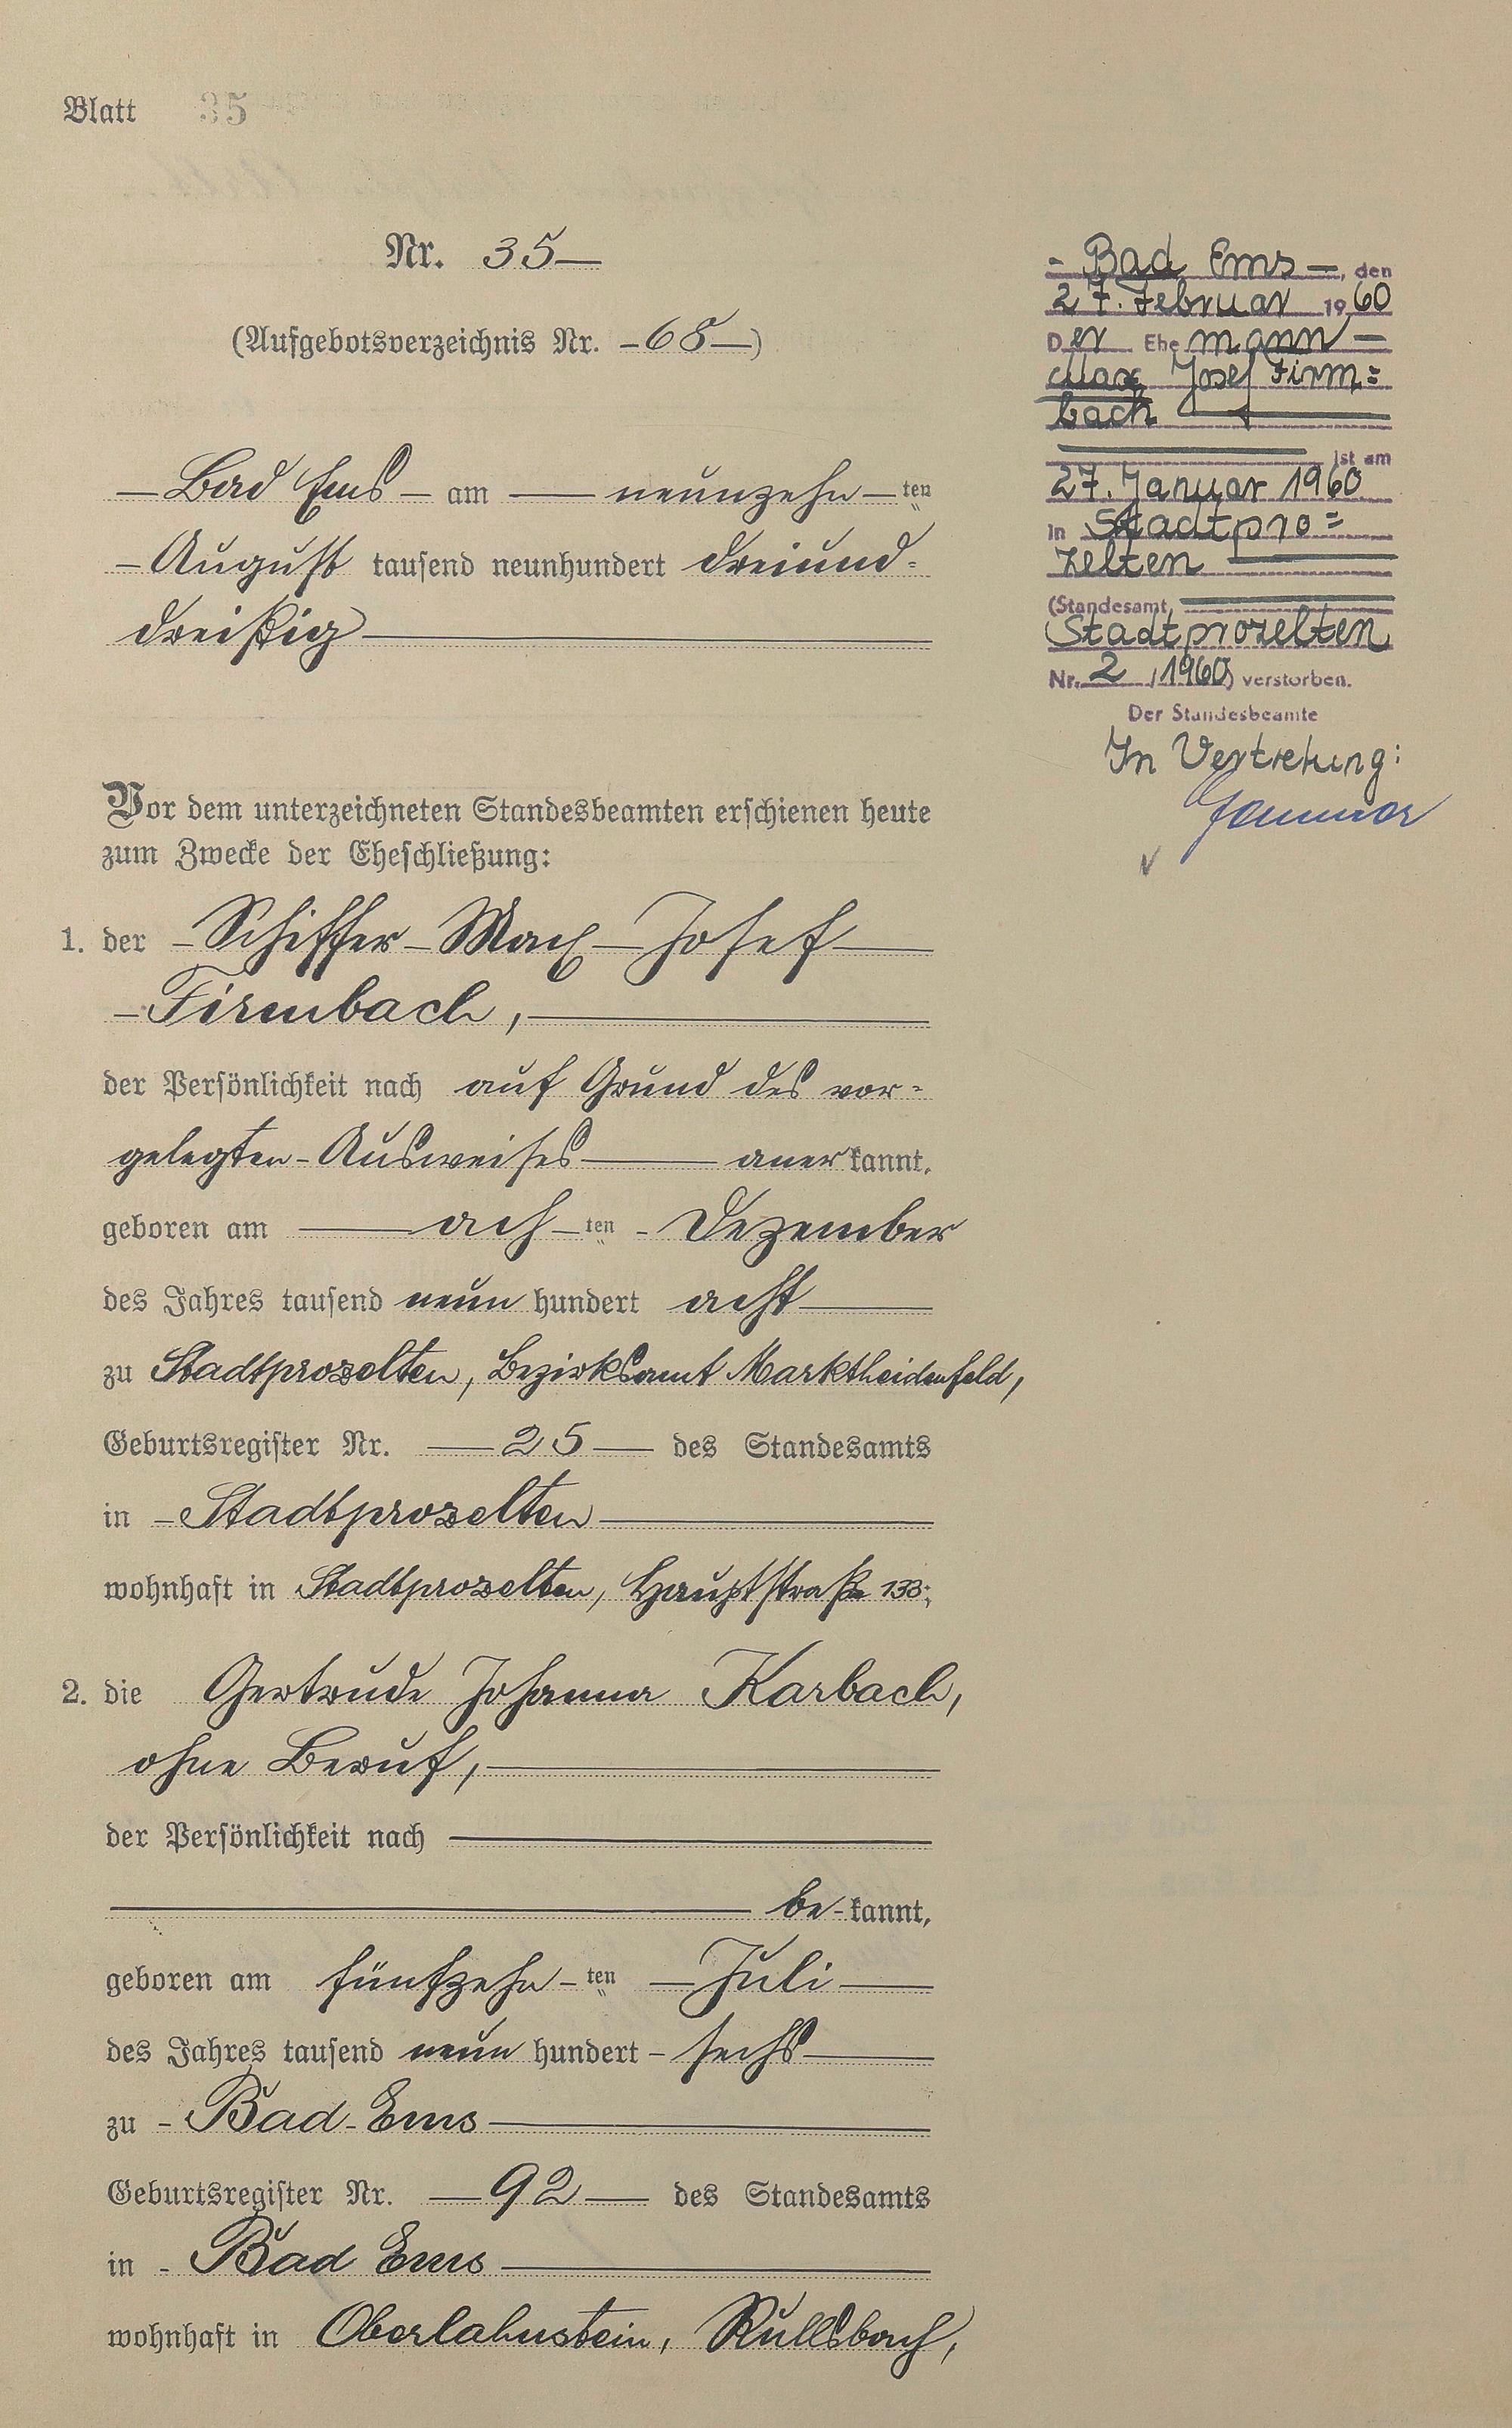 Blatt 35
Nr. 35
(Aufgebotsverzeichnis Nr. - 68 -)
- Bad Ems - am - neunzehn - ten
- August tausend neunhundert dreiund-
dreißig
Vor dem unterzeichneten Standesbeamten erschienen heute
zum Zwecke der Eheschließung:
1. der - Schiffer - Max - Josef
- Firmbach,
der Persönlichkeit nach auf Grund des vor-
gelegten - Ausweises - anerkannt.
geboren am - ach - ten - Dezember
des Jahres tausend neun hundert acht
zu Stadtprozelten, Bezirksamt Marktheidenfeld,
Geburtsregister Nr. - 25 - des Standesamts
in - Stadtprozelten
wohnhaft in Stadtprozelten, Hauptstraße 133;
2. die Gertrude Johanna Karbach,
ohne Beruf,
der Persönlichkeit nach
be-kannt,
geboren am fünfzehn - ten - Juli
des Jahres tausend neun hundert - sechs
zu - Bad - Ems
Geburtsregister Nr. - 92 - des Standesamts
in - Bad Ems
wohnhaft in Oberlahnstein,
- Bad Ems -, den
27. Februar 1960
Der Ehemann -
Max Josef Firm=
bach
ist am
27. Januar 1960
in Stadtpro=
zelten
(Standesamt
Stadtprozelten
Nr. 2 / 1960) verstorben.
Der Standesbeamte
In Vertretung: